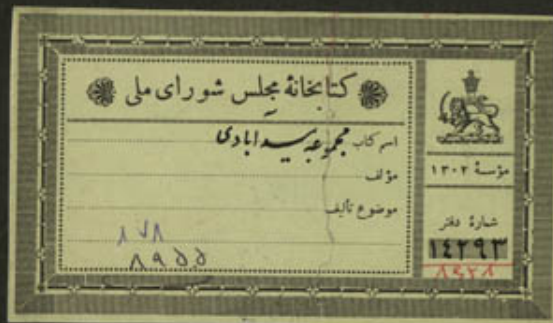 کتابخانهٔ مجلس شورای ملی
اسم کتاب مجموعه
مؤلف
موضوع تألیف
۸۷۸
۸۹۵۵
مؤسسهٔ ۱۳۰۲
شمارهٔ دفتر
۱۴۲۹۳